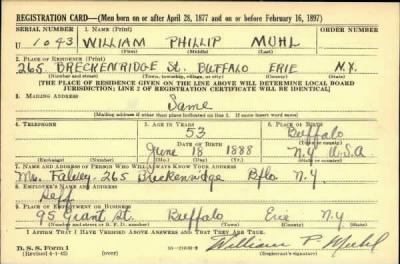 REGISTRATION CARD—(Men born on or after April 28, 1877 and on or before February 16, 1897)
SERIAL NUMBER 1. NAME (Print) ORDER NUMBER
U 1043 WILLIAM PHILLIP MUHL
(First) (Middle) (Last)
2. PLACE OF RESIDENCE (Print)
265 BRECKENRIDGE St. BUFFALO ERIE N.Y.
(Number and street) (Town, township, village, or city) (County) (State)
[THE PLACE OF RESIDENCE GIVEN ON THE LINE ABOVE WILL DETERMINE LOCAL BOARD
JURISDICTION; LINE 2 OF REGISTRATION CERTIFICATE WILL BE IDENTICAL]
3. MAILING ADDRESS
Same
[Mailing address if other than place indicated on line 2. If same insert word same]
4. TELEPHONE 5. AGE IN YEARS 6. PLACE OF BIRTH
53 Buffalo
DATE OF BIRTH (Town or county)
June 18 1888 N.Y U.S.A
(Exchange) (Number) (Mo.) (Day) (Yr.) (State or country)
7. NAME AND ADDRESS OF PERSON WHO WILL ALWAYS KNOW YOUR ADDRESS
265 Breckenridge Bflo. N.Y.
8. EMPLOYER'S NAME AND ADDRESS
Self
9. PLACE OF EMPLOYMENT OR BUSINESS
95 Grant St. Buffalo Erie N.Y
(Number and street or R. F. D. number) (Town) (County) (State)
I AFFIRM THAT I HAVE VERIFIED ABOVE ANSWERS AND THAT THEY ARE TRUE.
D. S. S. Form 1
(Revised 4-1-42) (over) William P. Muhl
(Registrant's signature)